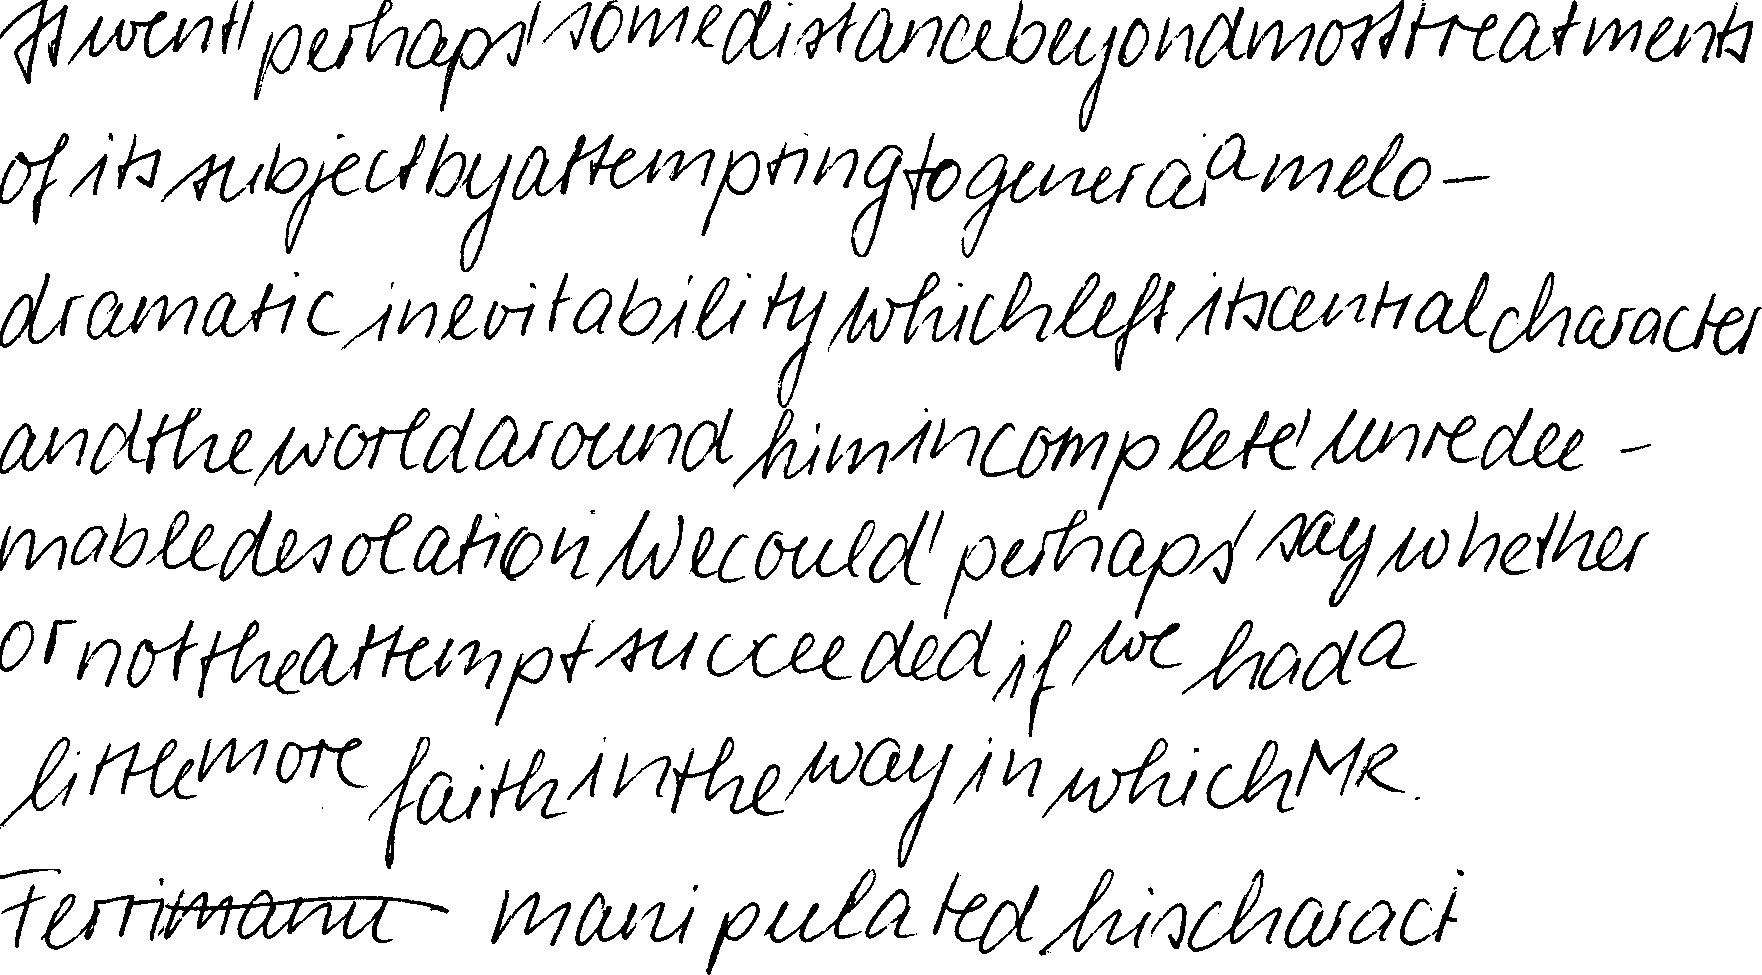 It went' perhaps' some distance beyond most treatments
of its subject by attempting to genera a melo-
dramatic inevitability which left its central character
and the world around him in complete' unredee-
mable desolation We could' perhaps' say whether
or not the attempt succeeded if we had a
little more faith in the way in which MR.
Ferrimann manipulated his charact